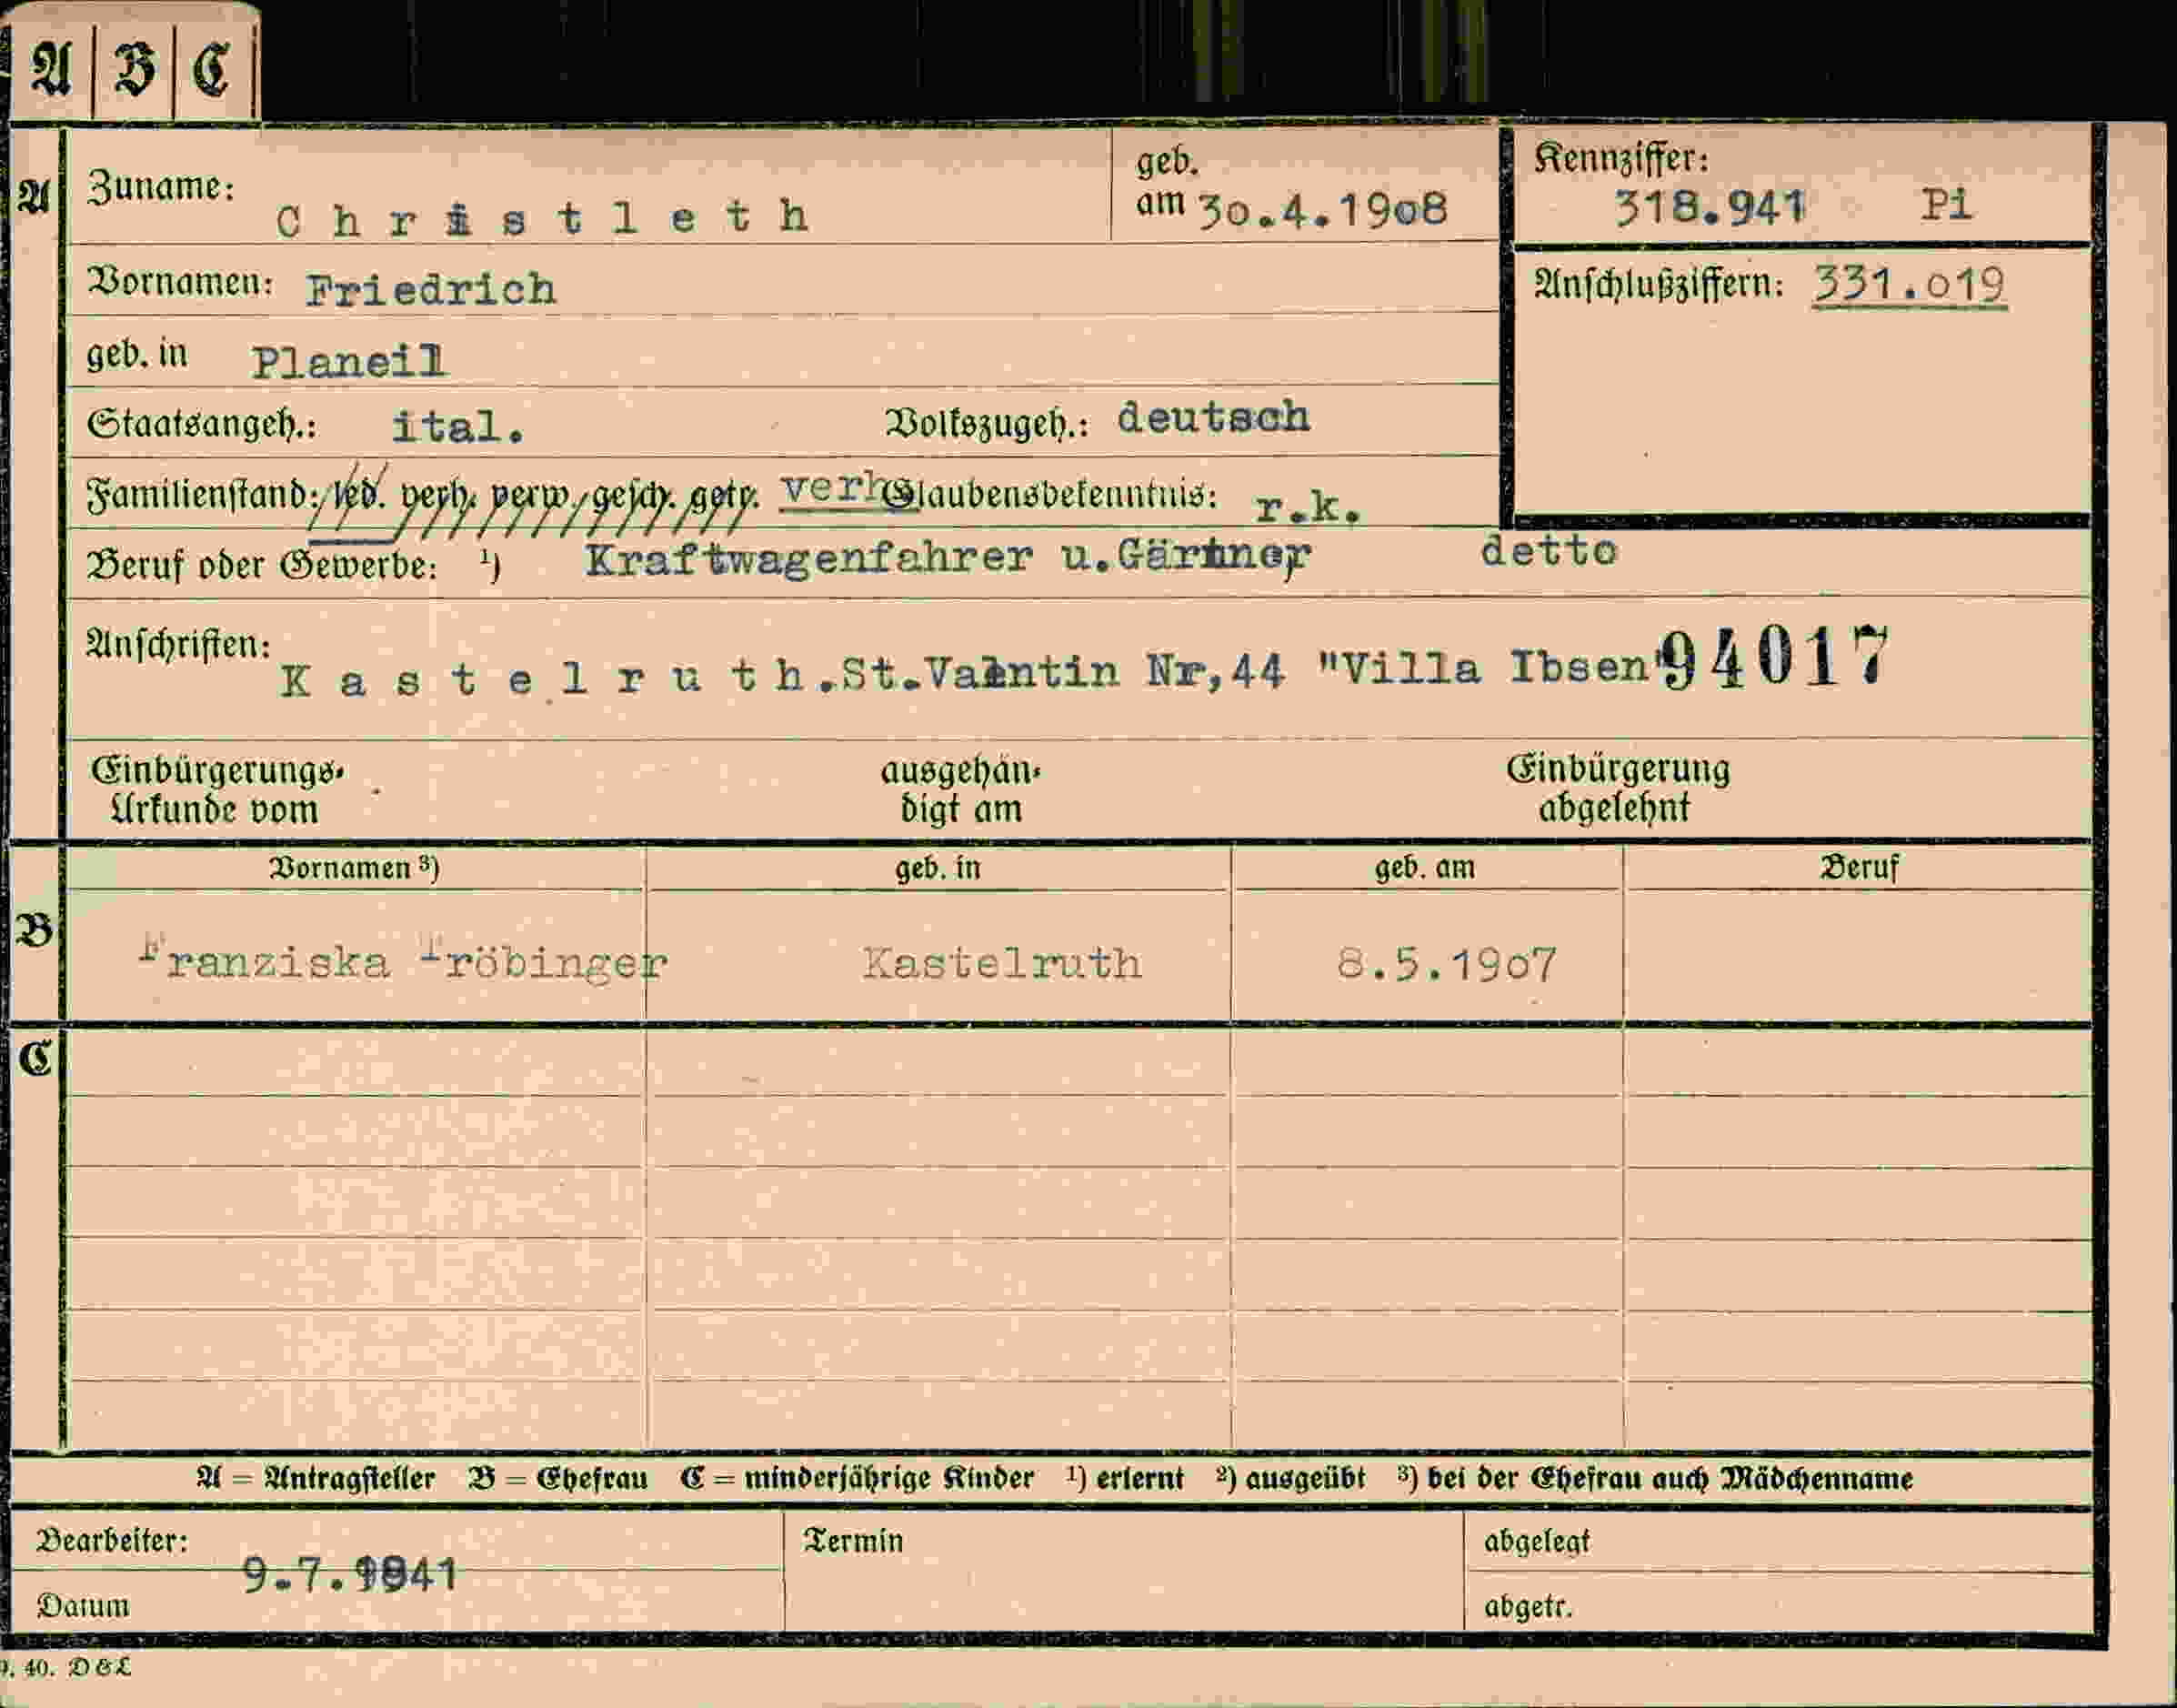 A B C
A
Zuname: Christleth
geb. am 30.4.1908
Kennziffer: 318.941 Pi
Vornamen: Friedrich
Anschlußziffern: 331.019
geb. in Planeil
Staatsangeh.: ital. Volkszugeh.: deutsch
Familienstand: led. verh. verw. gesch. getr. verh Glaubensbekenntnis: r.k.
Beruf oder Gewerbe: ¹) Kraftwagenfahrer u.Gärtner detto
Anschriften: Kastelruth.St.Valentin Nr,44 "Villa Ibsen" 94017
Einbürgerungs-Urkunde vom ausgehän-digt am Einbürgerung abgelehnt
Vornamen ³) geb. in geb. am Beruf
B
Franziska Tröbinger Kastelruth 8.5.1907
C
A = Antragsteller B = Ehefrau C = minderjährige Kinder ¹) erlernt ²) ausgeübt ³) bei der Ehefrau auch Mädchenname
Bearbeiter: Termin abgelegt
9.7.1941
Datum abgetr.
40. D&L